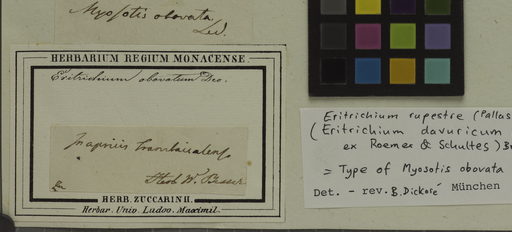 Myosotis obovata
Led.
HERBARIUM REGIUM MONACENSE.
Eritrichium obovatum Dec.
In apricis transbaicalens
Herb. W. Besser
HERB. ZUCCARINII.
Herbar. Univ. Ludov. Maximil.
Eritrichium rupestre (Pallas
(Eritrichium davuricum
ex Roemer & Schultes) B
= Type of Myosotis obovata
Det. - rev. B. Dickoré München